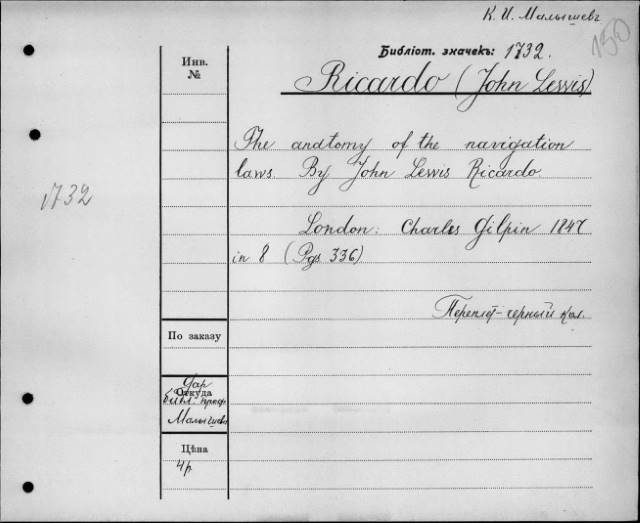 К. И. Малышевъ
150
Библіот. значекъ: 1732.
Инв.
№
Ricardo (John Lewis)
The anatomy of the navigation
laws. By John Lewis Ricardo.
1732
London: Charles Gilpin 1847
in 8 (Pgs 336)
Переплёт-черный кол.
По заказу
Дар
Откуда
библ. проф.
Малышева
Цѣна
4 р.